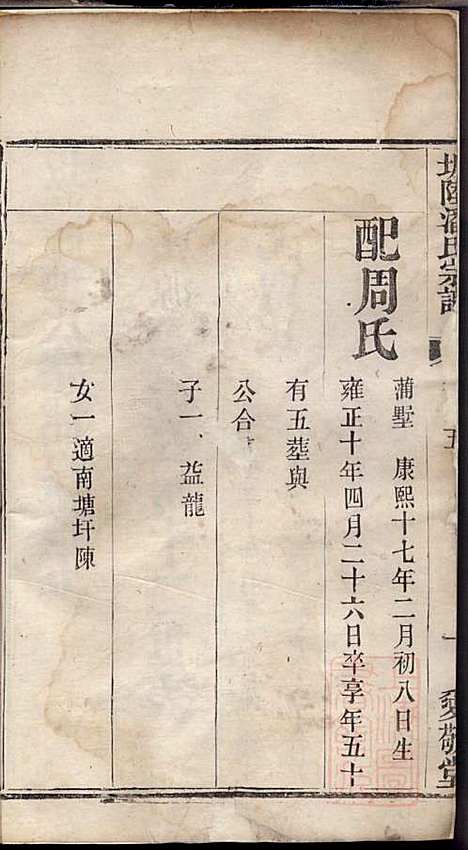 配周氏
蒲墅 康熙十七年二月初八日生
雍正十年四月二十六日卒享年五十
有五葬與
公合
子一、益龍
女一適南塘圩陳
潘氏宗譜
五
愛敬堂